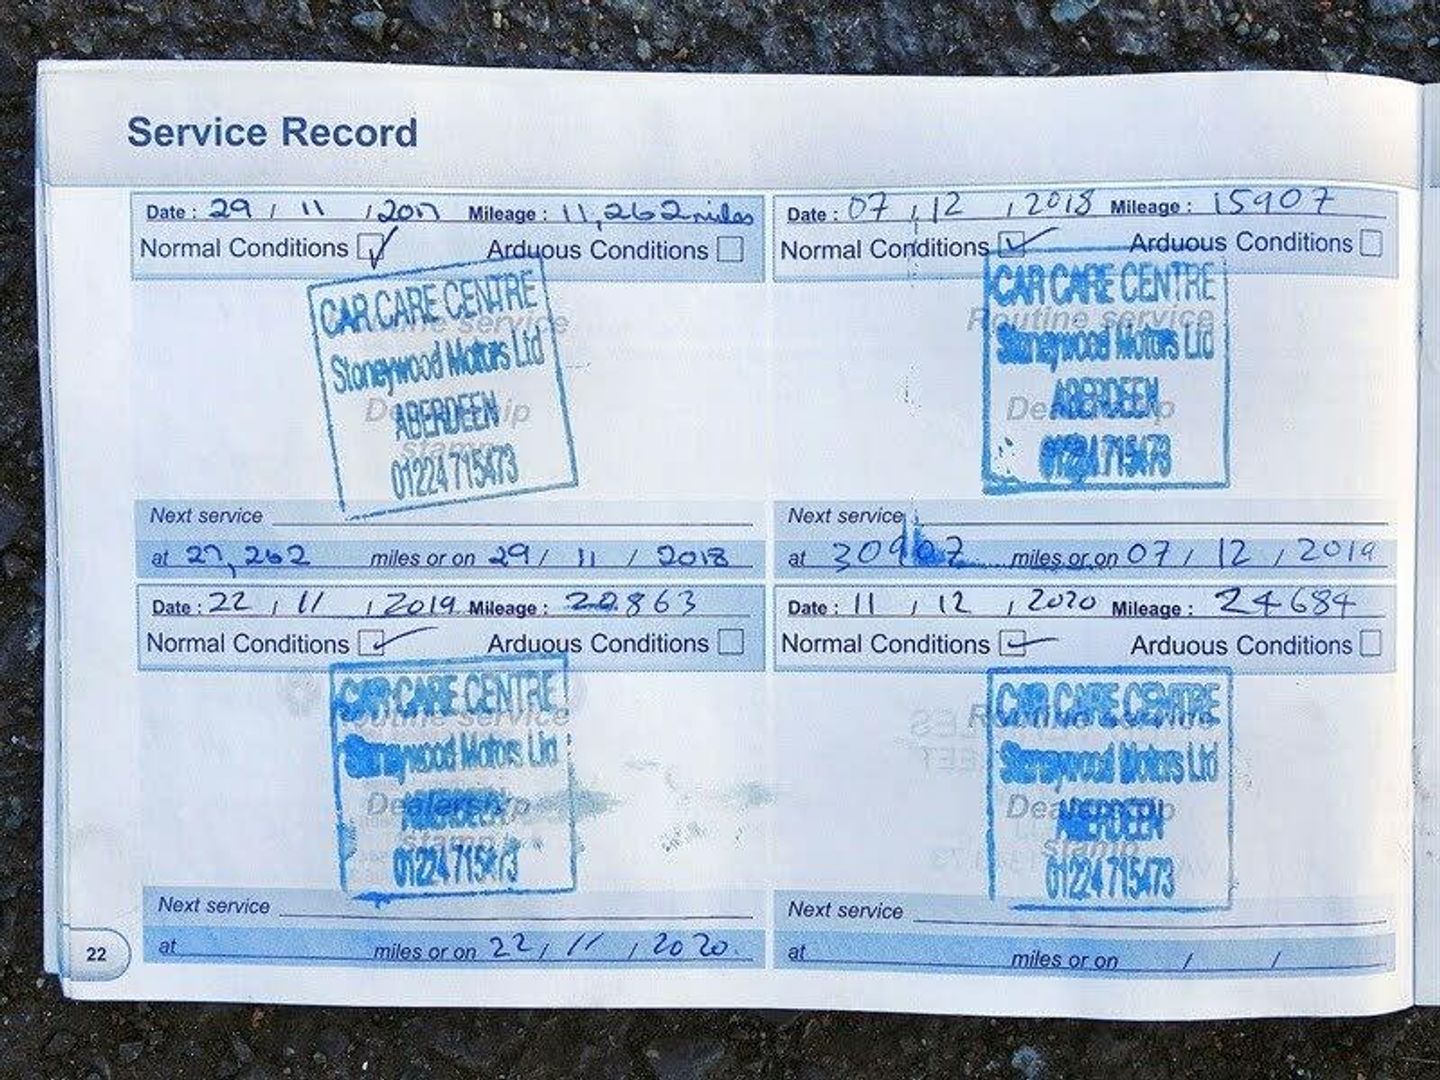 Service Record
Date : 29 / 11 / 2017 Mileage : 11,262 miles
Normal Conditions Arduous Conditions
CAR CARE CENTRE
Routine service
Stoneywood Motors Ltd
Dealership
ABERDEEN
stamp
01224 715473
Next service
at 27,262 miles or on 29 / 11 / 2018
Date : 07 / 12 / 2018 Mileage : 15907
Normal Conditions Arduous Conditions
CAR CARE CENTRE
Routine service
Stoneywood Motors Ltd
Dealership
ABERDEEN
01224 715473
Next service
at 30907 miles or on 07 / 12 / 2019
Date : 22 / 11 / 2019 Mileage : 20863
Normal Conditions Arduous Conditions
CAR CARE CENTRE
Routine service
Stoneywood Motors Ltd
Dealership
ABERDEEN
stamp
01224 715473
Next service
at miles or on 22 / 11 / 2020.
Date : 11 / 12 / 2020 Mileage : 24684
Normal Conditions Arduous Conditions
CAR CARE CENTRE
Routine service
Stoneywood Motors Ltd
Dealership
ABERDEEN
stamp
01224 715473
Next service
at miles or on / /
22